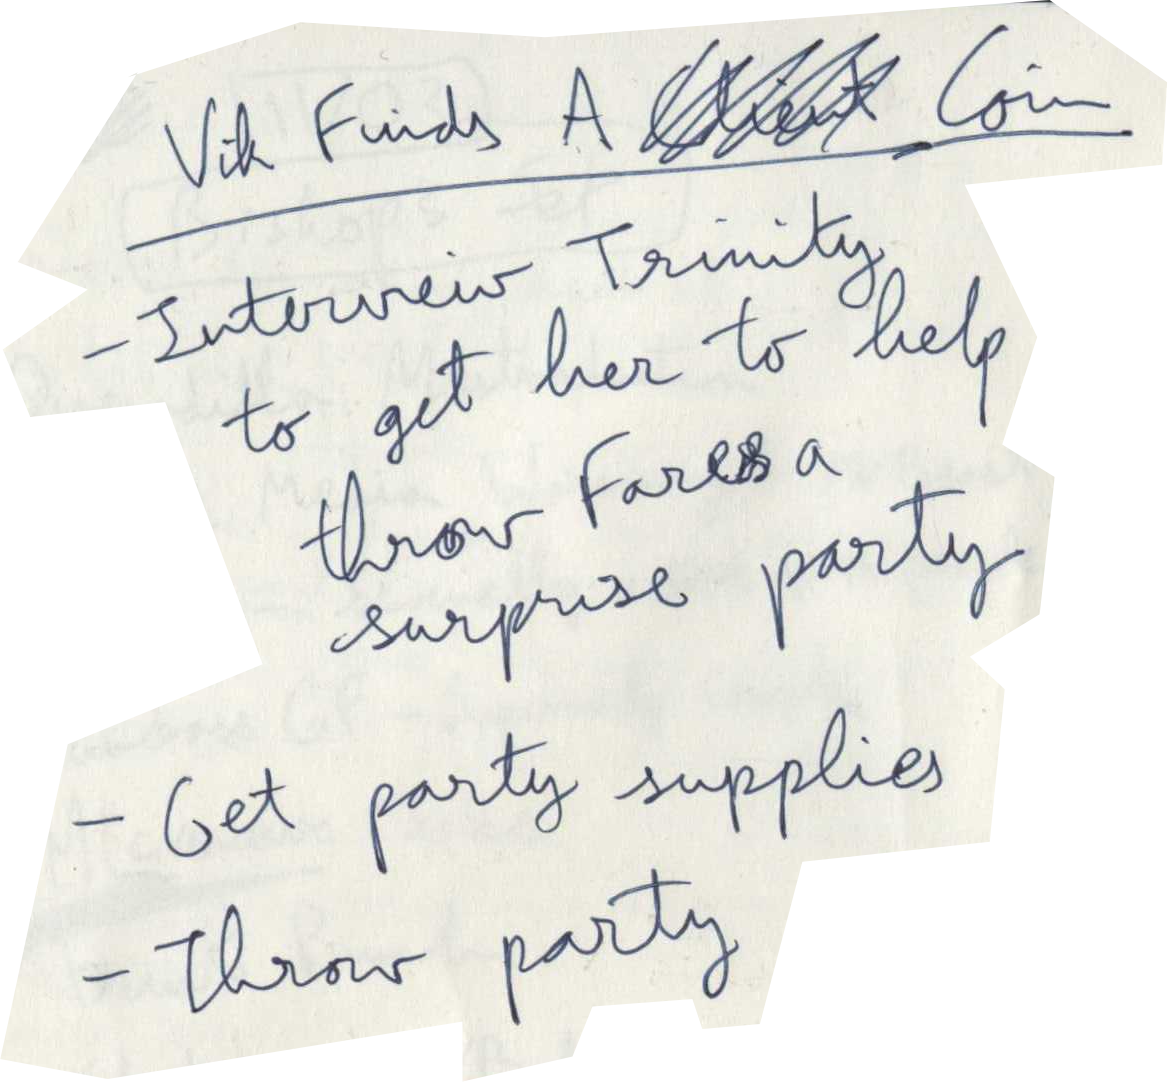 Vik Finds A Coin
- Interveiw Trinity
to get her to help
throw Fares a
surprise party
- Get party supplies
- Throw party